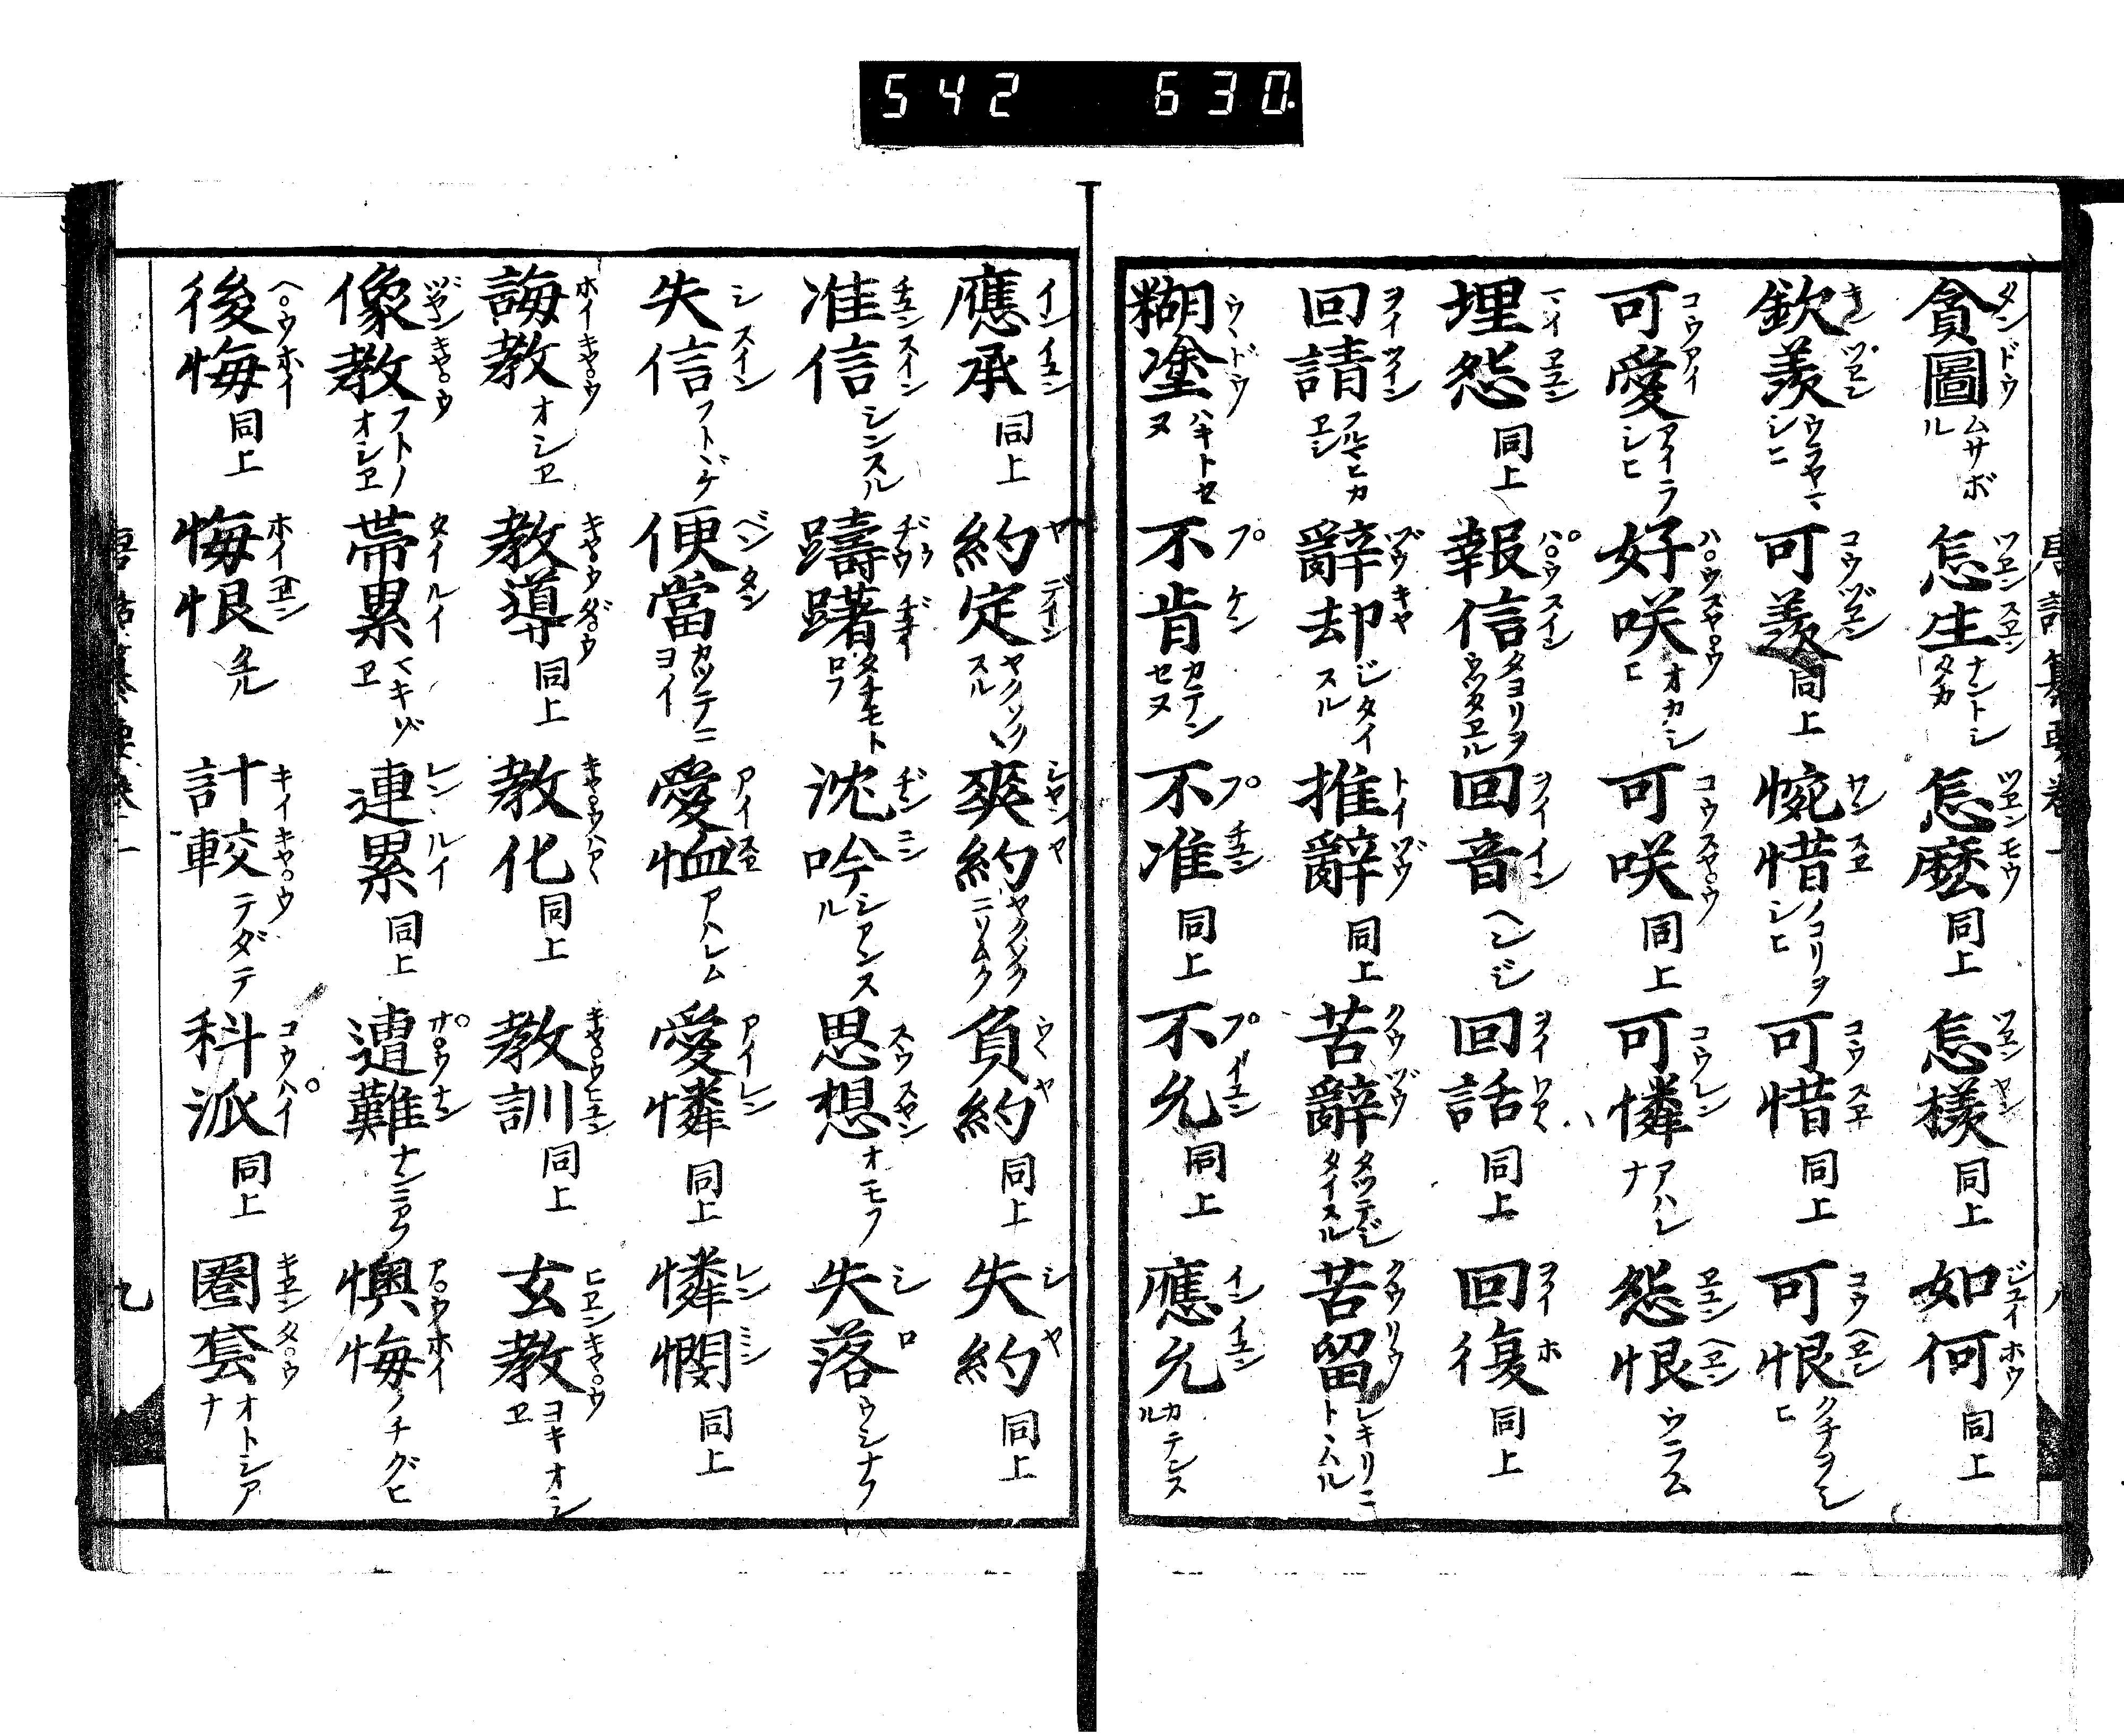 542 630
貪圖 タンドウ ムサボル 怎生 ツヱンスヱン ナントシタカ 怎麽 ツヱンモウ 同上 怎樣 ツヱンヤン 同上 如何 ジユイホウ 同上
欽羨 キンヅヱン ウラヤマシヒ 可羨 コウヅヱン 同上 惋惜 ワンスヱ ノコリヲシヒ 可惜 コウスヱ 同上 可恨 コウヘヱン クチヲシヒ
可愛 コウアイ アイラシヒ 好咲 ハ○ウスヤ○ウ オカシヒ 可咲 コウスヤ○ウ 同上 可憐 コウレン アハレナ 怨恨 ヱヱンヘヱン ウラム
埋怨 マイヱヱン 同上 報信 パ○ウスイン タヨリヲウツタヱル 回音 ヲイイン ヘンジ 回話 ヲイワアヽ 同上 回復 ヲイホ 同上
回請 ヲイツイン フルマヒカヱシ 辭却 ヅウキヤ ジタイスル 推辭 トイヅウ 同上 苦辭 クウヅウ タツテジタイスル 苦留 クウリウ シキリニトヽムル
糊塗 ウヽドウ ハキトセヌ 不肯 プケン カテンセヌ 不准 プチユン 同上 不允 プイユン 同上 應允 インイユン カテンスル
唐話纂要卷一 八
應承 インイユン 同上 約定 ヤデイン ヤクソクスル 爽約 シヤンヤ ヤクソクニソムク 負約 ウヽヤ 同上 失約 シヤ 同上
准信 チユンスイン シンスル 躊躇 ヂウヂユイ タチモトロフ 沈吟 ヂンニン シアンスル 思想 スウスヤン オモフ 失落 シロ ウシナフ
失信 シスイン フトヾケ 便當 ベンタン カツテニヨイ 愛恤 アイスヱ アハレム 愛憐 アイレン 同上 憐憫 レンミン 同上
誨教 ホイキヤ○ウ オシヱ 教導 キヤ○ウダ○ウ 同上 教化 キヤ○ウハアヽ 同上 教訓 キヤ○ウヒユン 同上 玄教 ヒヱンキヤ○ウ ヨキオシヱ
像教 ヅヤンキヤ○ウ フトノオシヱ 帶累 タイルイ マキゾヱ 連累 レンルイ 同上 遭難 ナンニアウ 懊悔 ア○ウホイ ノチグヒ
後悔 ヘ○ウホイ 同上 悔恨 ホイヘヱン 計較 キイキヤ○ウ テダテ 科派 コウパイ 同上 圏套 キヱンタ○ウ オトシアナ
唐話纂要卷一 九